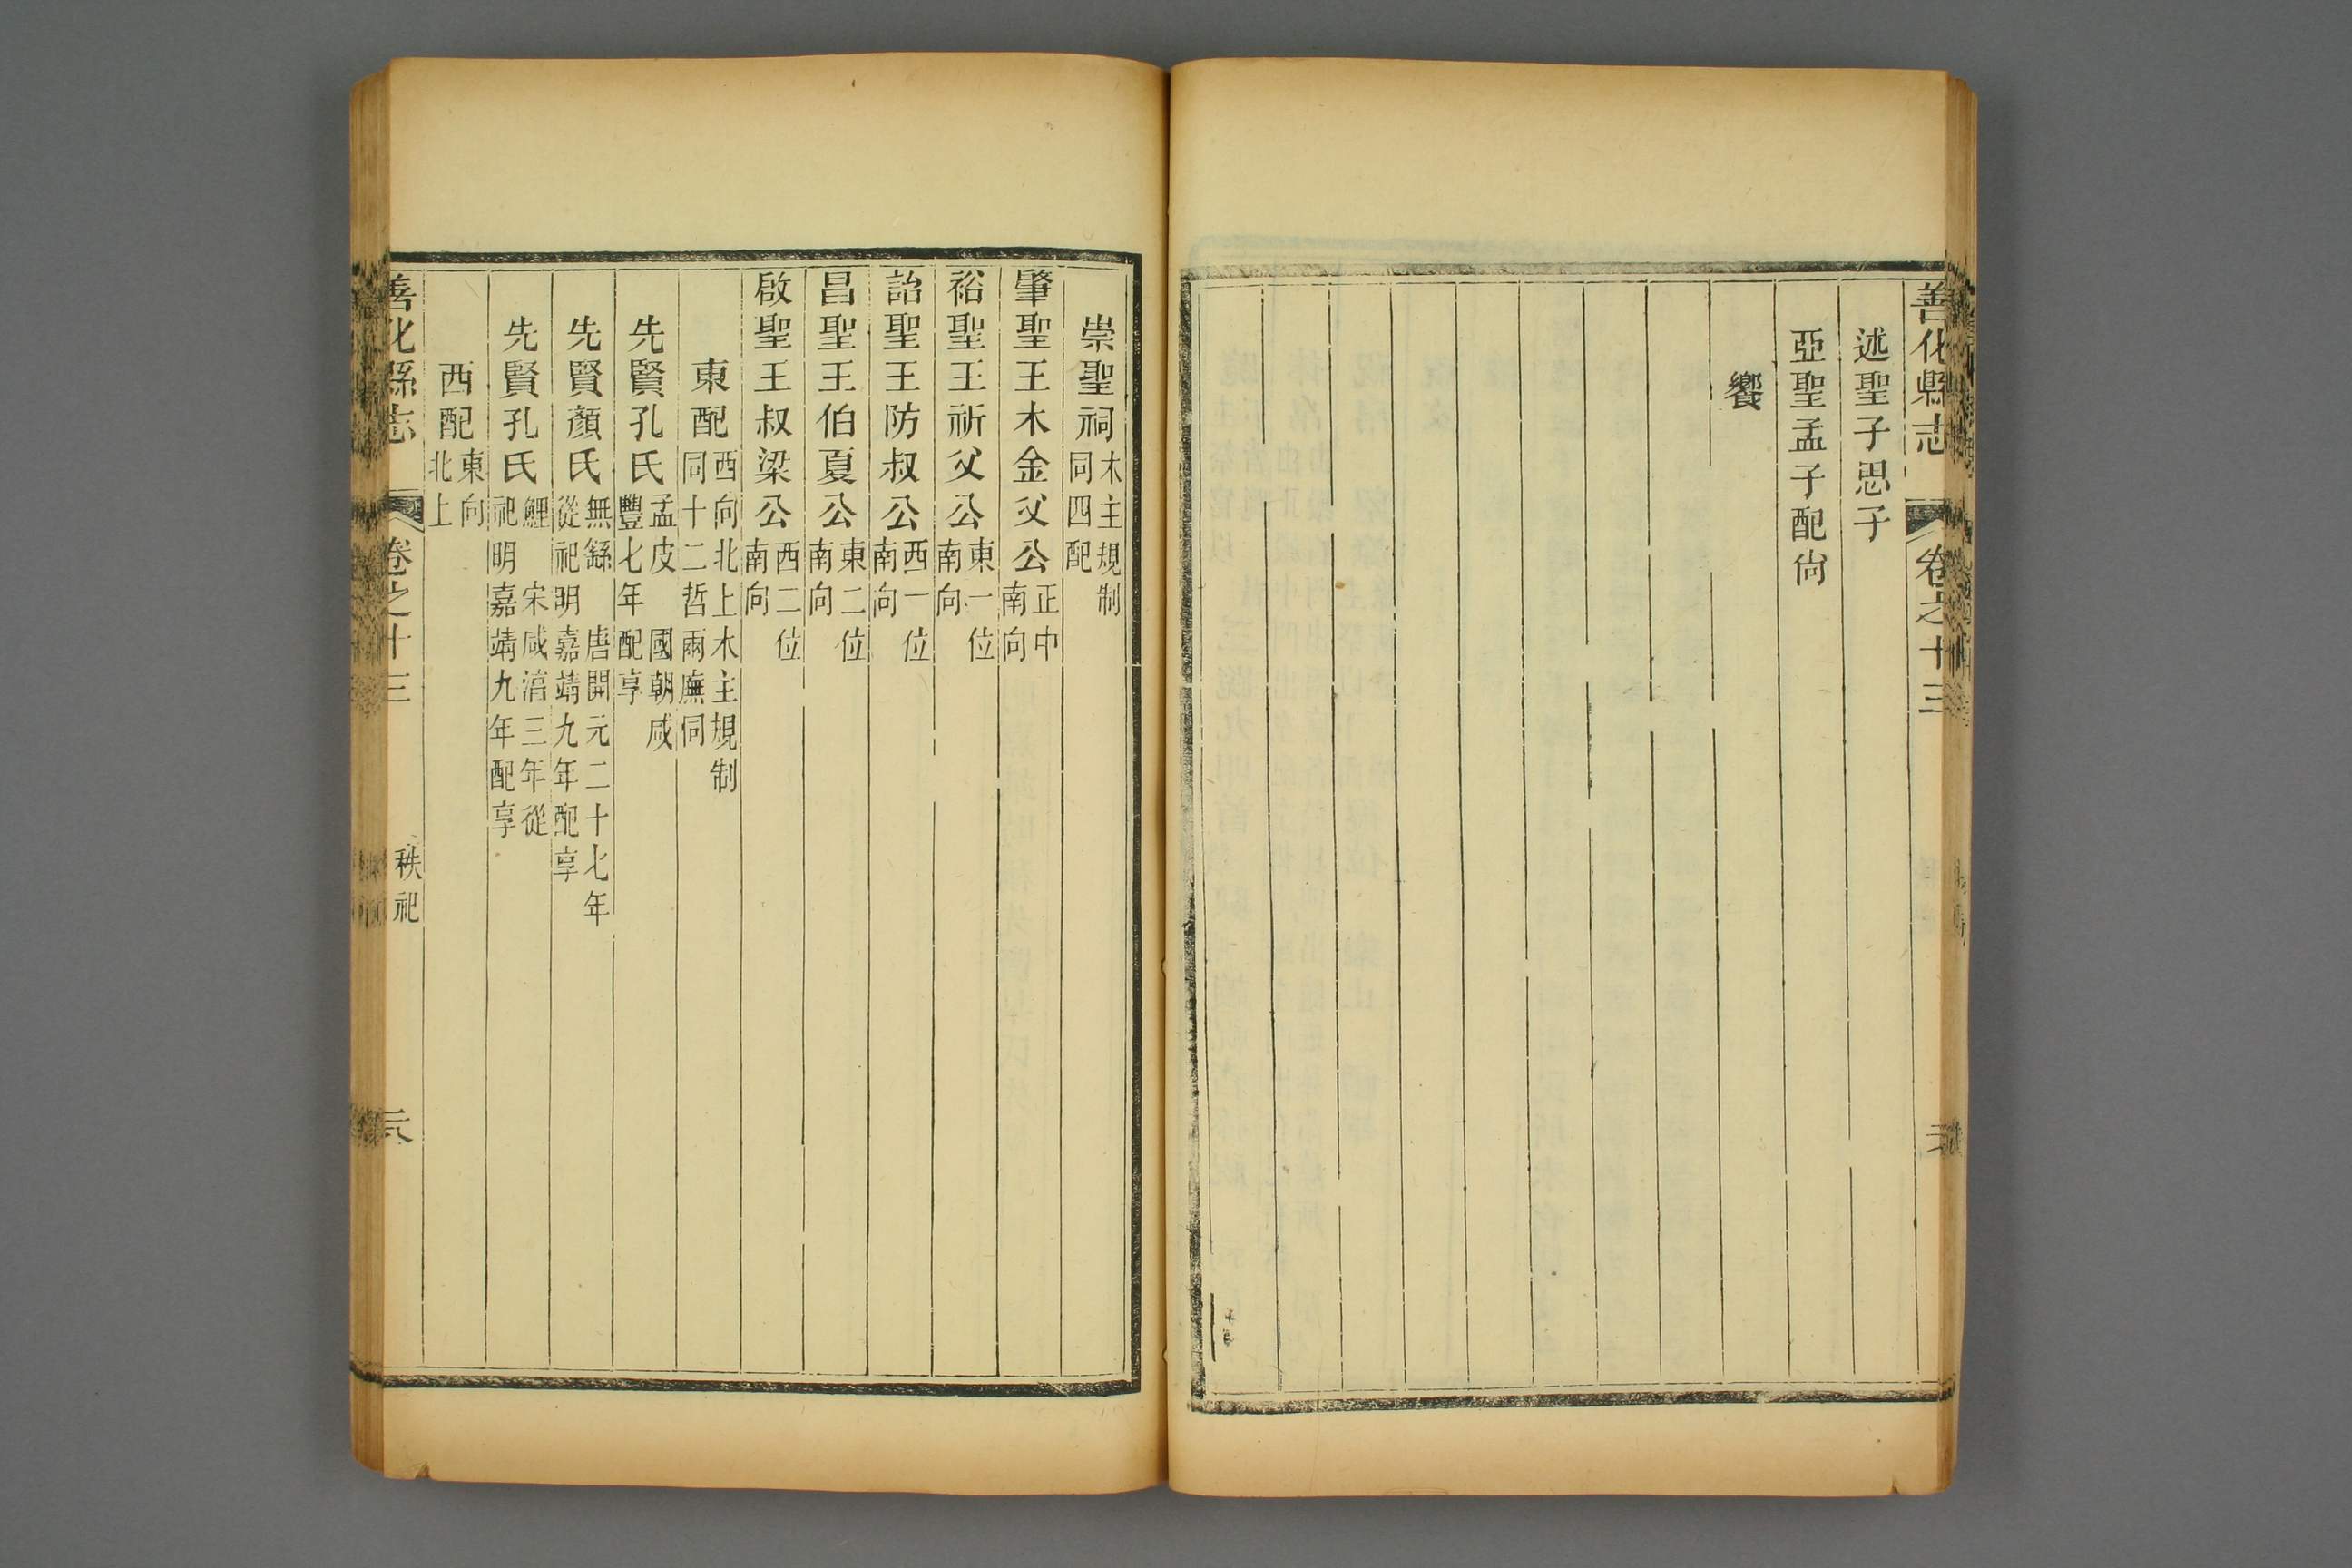 善化縣志
卷之十三
述聖子思子
亞聖孟子配尙
饗
崇聖祠木主規制同四配
肇聖王木金父公正中南向
裕聖王祈父公東一位南向
詒聖王防叔公西一位南向
昌聖王伯夏公東二位南向
啟聖王叔梁公西二位南向
東配西向北上木主規制同十二哲兩廡同
先賢孔氏孟皮 國朝咸豐七年配享
先賢顏氏無繇 唐開元二十七年從祀明嘉靖九年配享
先賢孔氏鯉 宋咸淳三年從祀明嘉靖九年配享
西配東向北上
善化縣志
卷之十三
秩祀